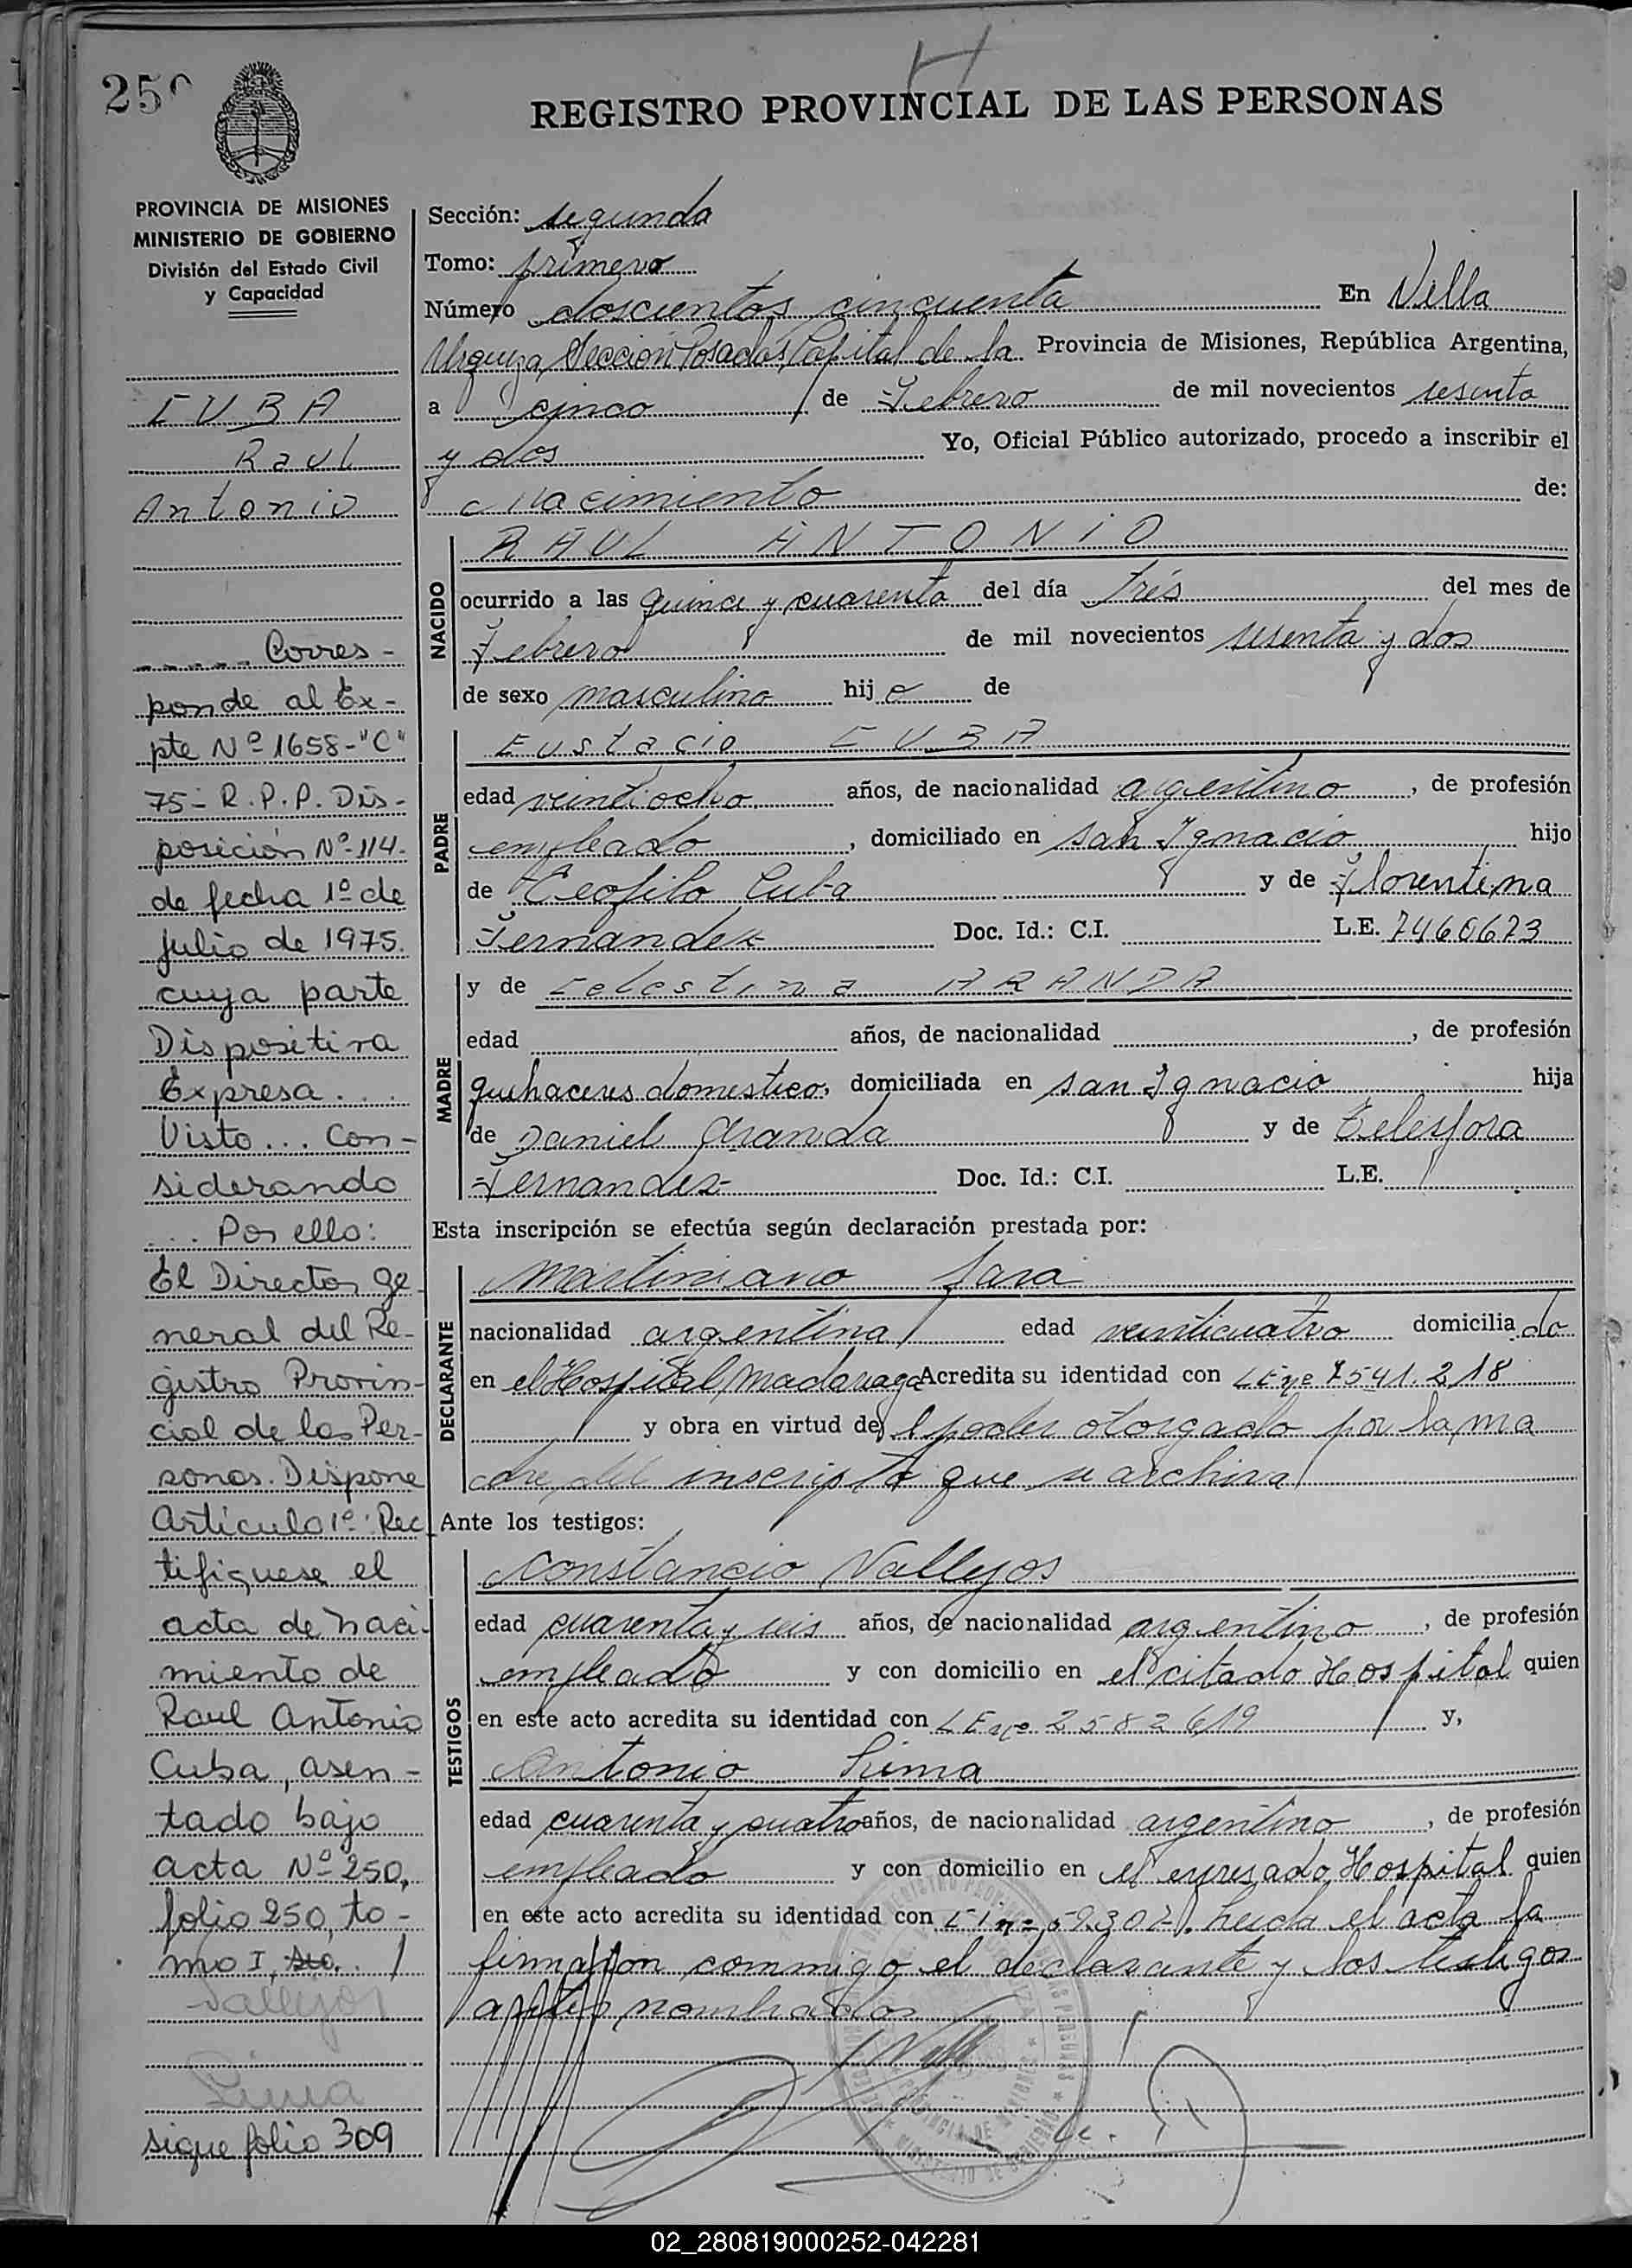 250
REGISTRO PROVINCIAL DE LAS PERSONAS
PROVINCIA DE MISIONES
MINISTERIO DE GOBIERNO
División del Estado Civil
y Capacidad
CUBA
Raul
Antonio
..... Corres-
ponde al Ex-
pte Nº 1658-"C"
75- R.P.P. Dis-
posición Nº 114-
de fecha 1º de
julio de 1975.
cuya parte
Dispositiva
Expresa...
Visto... Con-
siderando
... Por ello:
El Director ge-
neral del Re-
gistro Provin-
cial de las Per-
sonas. Dispone
Artículo 1º: Rec
tifiquese el
acta de naci-
miento de
Raul Antonio
Cuba, asen-
tado bajo
acta Nº 250,
folio 250, to-
mo I,
Vallejos
Lima
sigue folio 309
Sección: segunda
Tomo: primero
Número doscientos cincuenta En Villa
Urquiza, Sección Posadas, Capital de la Provincia de Misiones, República Argentina,
a cinco de Febrero de mil novecientos sesenta
y dos Yo, Oficial Público autorizado, procedo a inscribir el
nacimiento de:
NACIDO
RAUL ANTONIO
ocurrido a las quince y cuarenta del día trés del mes de
Febrero de mil novecientos sesenta y dos
de sexo masculino hijo de
PADRE
Eustacio CUBA
edad veintiocho años, de nacionalidad argentino, de profesión
empleado, domiciliado en san Ignacio hijo
de Teofilo Cuba y de Florentina
Fernandez Doc. Id.: C.I. L.E. 7460673
MADRE
y de Celestina ARANDA
edad años, de nacionalidad , de profesión
quehaceres domestico, domiciliada en san Ignacio hija
de Daniel Aranda y de Telesfora
Fernandez Doc. Id.: C.I. L.E.
Esta inscripción se efectúa según declaración prestada por:
DECLARANTE
Martiniano Jara
nacionalidad argentina edad veinticuatro domiciliado
en el Hospital Madariaga Acredita su identidad con LE nº 7541.218
y obra en virtud del poder otorgado por la ma
dre del inscripto que se archiva
Ante los testigos:
TESTIGOS
Constancio Vallejos
edad cuarenta y seis años, de nacionalidad argentino, de profesión
empleado y con domicilio en el citado Hospital quien
en este acto acredita su identidad con LE nº 2582619 y,
Antonio Lima
edad cuarenta y cuatro años, de nacionalidad argentino, de profesión
empleado y con domicilio en el expresado Hospital quien
en este acto acredita su identidad con Leida el acta la
firmaron conmigo el declarante y los testigos
antes nombrados
02_280819000252-042281